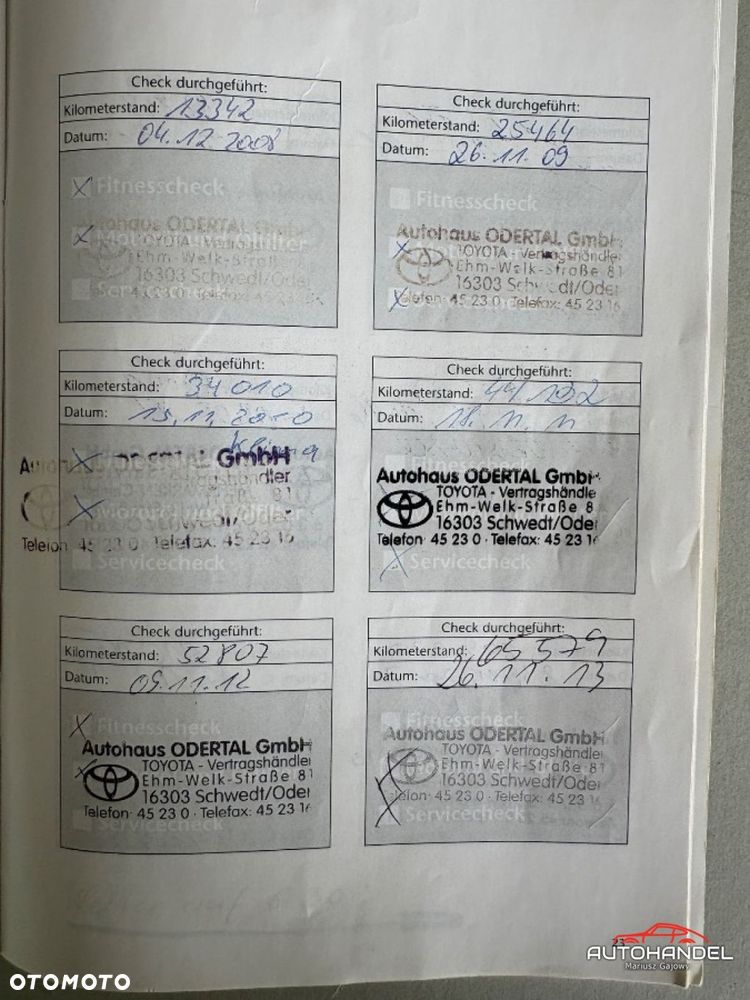 Check durchgeführt:
Kilometerstand: 13342
Datum: 04.12.2008
Fitnesscheck
Autohaus ODERTAL GmbH
TOYOTA - Vertragshändler
Ehm-Welk-Straße
16303 Schwedt/Oder
Servicecheck
45 23 0 · Telefax: 45 23
Check durchgeführt:
Kilometerstand: 25464
Datum: 26.11.09
Fitnesscheck
Autohaus ODERTAL GmbH
TOYOTA - Vertragshändler
Ehm-Welk-Straße 81
16303 Schwedt/Oder
Telefon 45 23 0 · Telefax: 45 23 16
Check durchgeführt:
Kilometerstand: 34010
Datum: 2010
Klima
ODERTAL GmbH
Vertragshändler
81
16303 Schwedt/Oder
Telefon 45 23 0 Telefax: 45 23 16
Servicecheck
Check durchgeführt:
Kilometerstand:
Datum: 18.11.11
Autohaus ODERTAL GmbH
TOYOTA - Vertragshändle
Ehm-Welk-Straße 8
16303 Schwedt/Oder
Telefon 45 23 0 · Telefax: 45 23 16
Servicecheck
Check durchgeführt:
Kilometerstand: 52807
Datum: 09.11.12
Fitnesscheck
Autohaus ODERTAL GmbH
TOYOTA - Vertragshändler
Ehm-Welk-Straße 81
16303 Schwedt/Oder
Telefon 45 23 0 · Telefax: 45 23 16
Servicecheck
Check durchgeführt:
Kilometerstand: 65579
Datum: 26.11.13
Fitnesscheck
Autohaus ODERTAL GmbH
TOYOTA - Vertragshändler
Ehm-Welk-Straße 81
16303 Schwedt/Oder
Telefon 45 23 0 · Telefax: 45 23 16
Servicecheck
AUTOHANDEL
Mariusz Gajowy
OTOMOTO